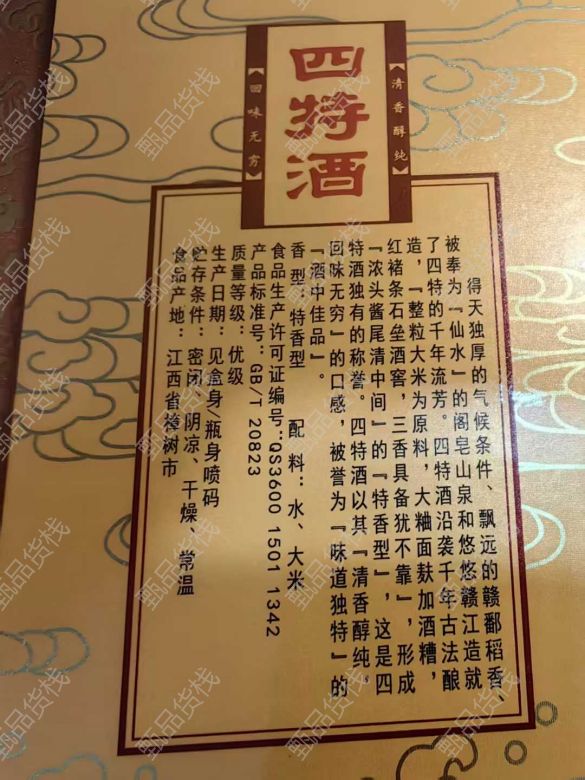 四特酒
【清香醇纯】
【回味无穷】
得天独厚的气候条件、飘远的赣鄱稻香、
被奉为『仙水』的阁皂山泉和悠悠赣江造就
了四特的千年流芳。四特酒沿袭千年古法酿
造，『整粒大米为原料，大粬面麸加酒糟，
红褚条石垒酒窖，三香具备犹不靠』，形成
『浓头酱尾清中间』的『特香型』，这是四
特酒独有的称誉。四特酒以其『清香醇纯，
回味无穷』的口感，被誉为『味道独特』的
『酒中佳品』。
香型：特香型 配料：水、大米
食品生产许可证编号：QS3600 1501 1342
产品标准号：GB/T 20823
质量等级：优级
生产日期：见盒身/瓶身喷码
贮存条件：密闭、阴凉、干燥、常温
食品产地：江西省樟树市
甄品货栈